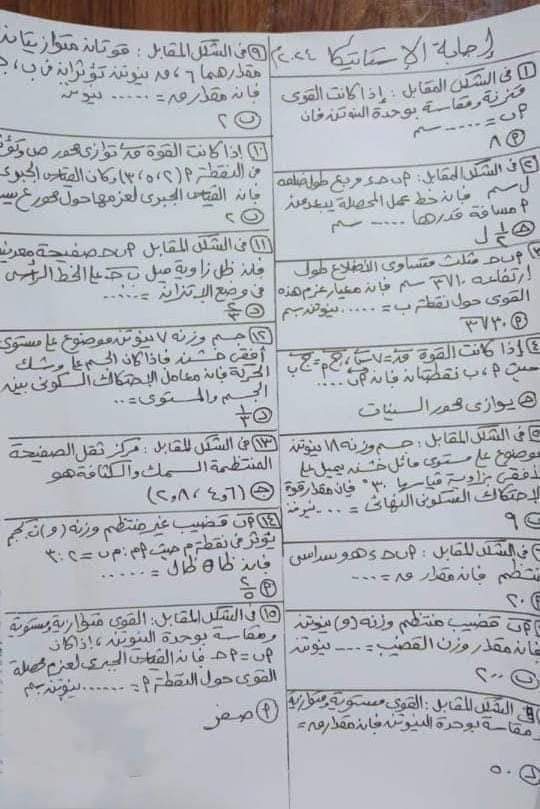 إجابة الإستاتيكا ٢٠٢٤م
١ في الشكل المقابل : إذا كانت القوى
متزنة ومقاسة بوحدة النيوتن فان
ب م = ..... سم
P ٨
٢ في الشكل المقابل: P ب حـ ء مربع طول ضلعه
ل سم فان خط عمل المحصلة يبعد عن
P مسافة قدرها ..... سم
١/٢ ل
٣ P ب حـ مثلث متساوى الأضلاع طول
سم فان معيار عزم هذه
القوى حول نقطة ب = ..... نيوتن سم
P
٤ إذا كانت القوة
حيث P ، ب نقطتان فان P ب ....
يوازى محور السينات
٥ في الشكل المقابل : جسم وزنه ١٨ نيوتن
موضوع على مستوى مائل خشن يميل على
الأفقى بزاوية قياسها ٣٠° فان مقدار قوة
الإحتكاك السكونى النهائى = .... نيوتن
٩
في الشكل المقابل : P ب حـ ء هـ و سداسى
منتظم فان مقدار = ....
٢٠
P ب قضيب منتظم وزنه (و) نيوتن
فان مقدار وزن القضيب = .... نيوتن
٢٠٠
في الشكل المقابل : القوى مستوية ومتوازية
ومقاسة بوحدة النيوتن فان مقدار =
٥٠
٩ في الشكل المقابل : قوتان متوازيتان
مقدارهما ٦ ، نيوتن تؤثران في ب ،
فان مقدار = ..... نيوتن
٢
١٠ إذا كانت القوة توازى محور ص وتؤثر
في النقطة P (٢ ، ٥ ، ٣) وكان القياس الجبرى
فان القياس الجبرى لعزمها حول محور ع
٢
١١ في الشكل المقابل P ب حـ صفيحة
فان ظل زاوية ميل ب حـ على الخط الرأسى
في وضع الإتزان = .....
١٢ جسم وزنه ٧ نيوتن موضوع على مستوى
أفقى خشن فاذا كان الجسم على وشك
الحركة فان معامل الإحتكاك السكونى بين
الجسم والمستوى = ..
١/٣
١٣ في الشكل المقابل : مركز ثقل الصفيحة
المنتظمة السمك والكثافة هو
١٤ P ب قضيب غير منتظم وزنه (و) ث كجم
يؤثر في نقطة م حيث P م : م ب = ٢ : ٣
فان ظا θ ظا ل = .....
P
١٥ في الشكل المقابل: القوى متوازية ومستوية
ومقاسة بوحدة النيوتن ، إذا كان
P ب = P حـ فان القياس الجبرى لعزم محصلة
القوى حول النقطة P = ...... نيوتن سم
P صفر